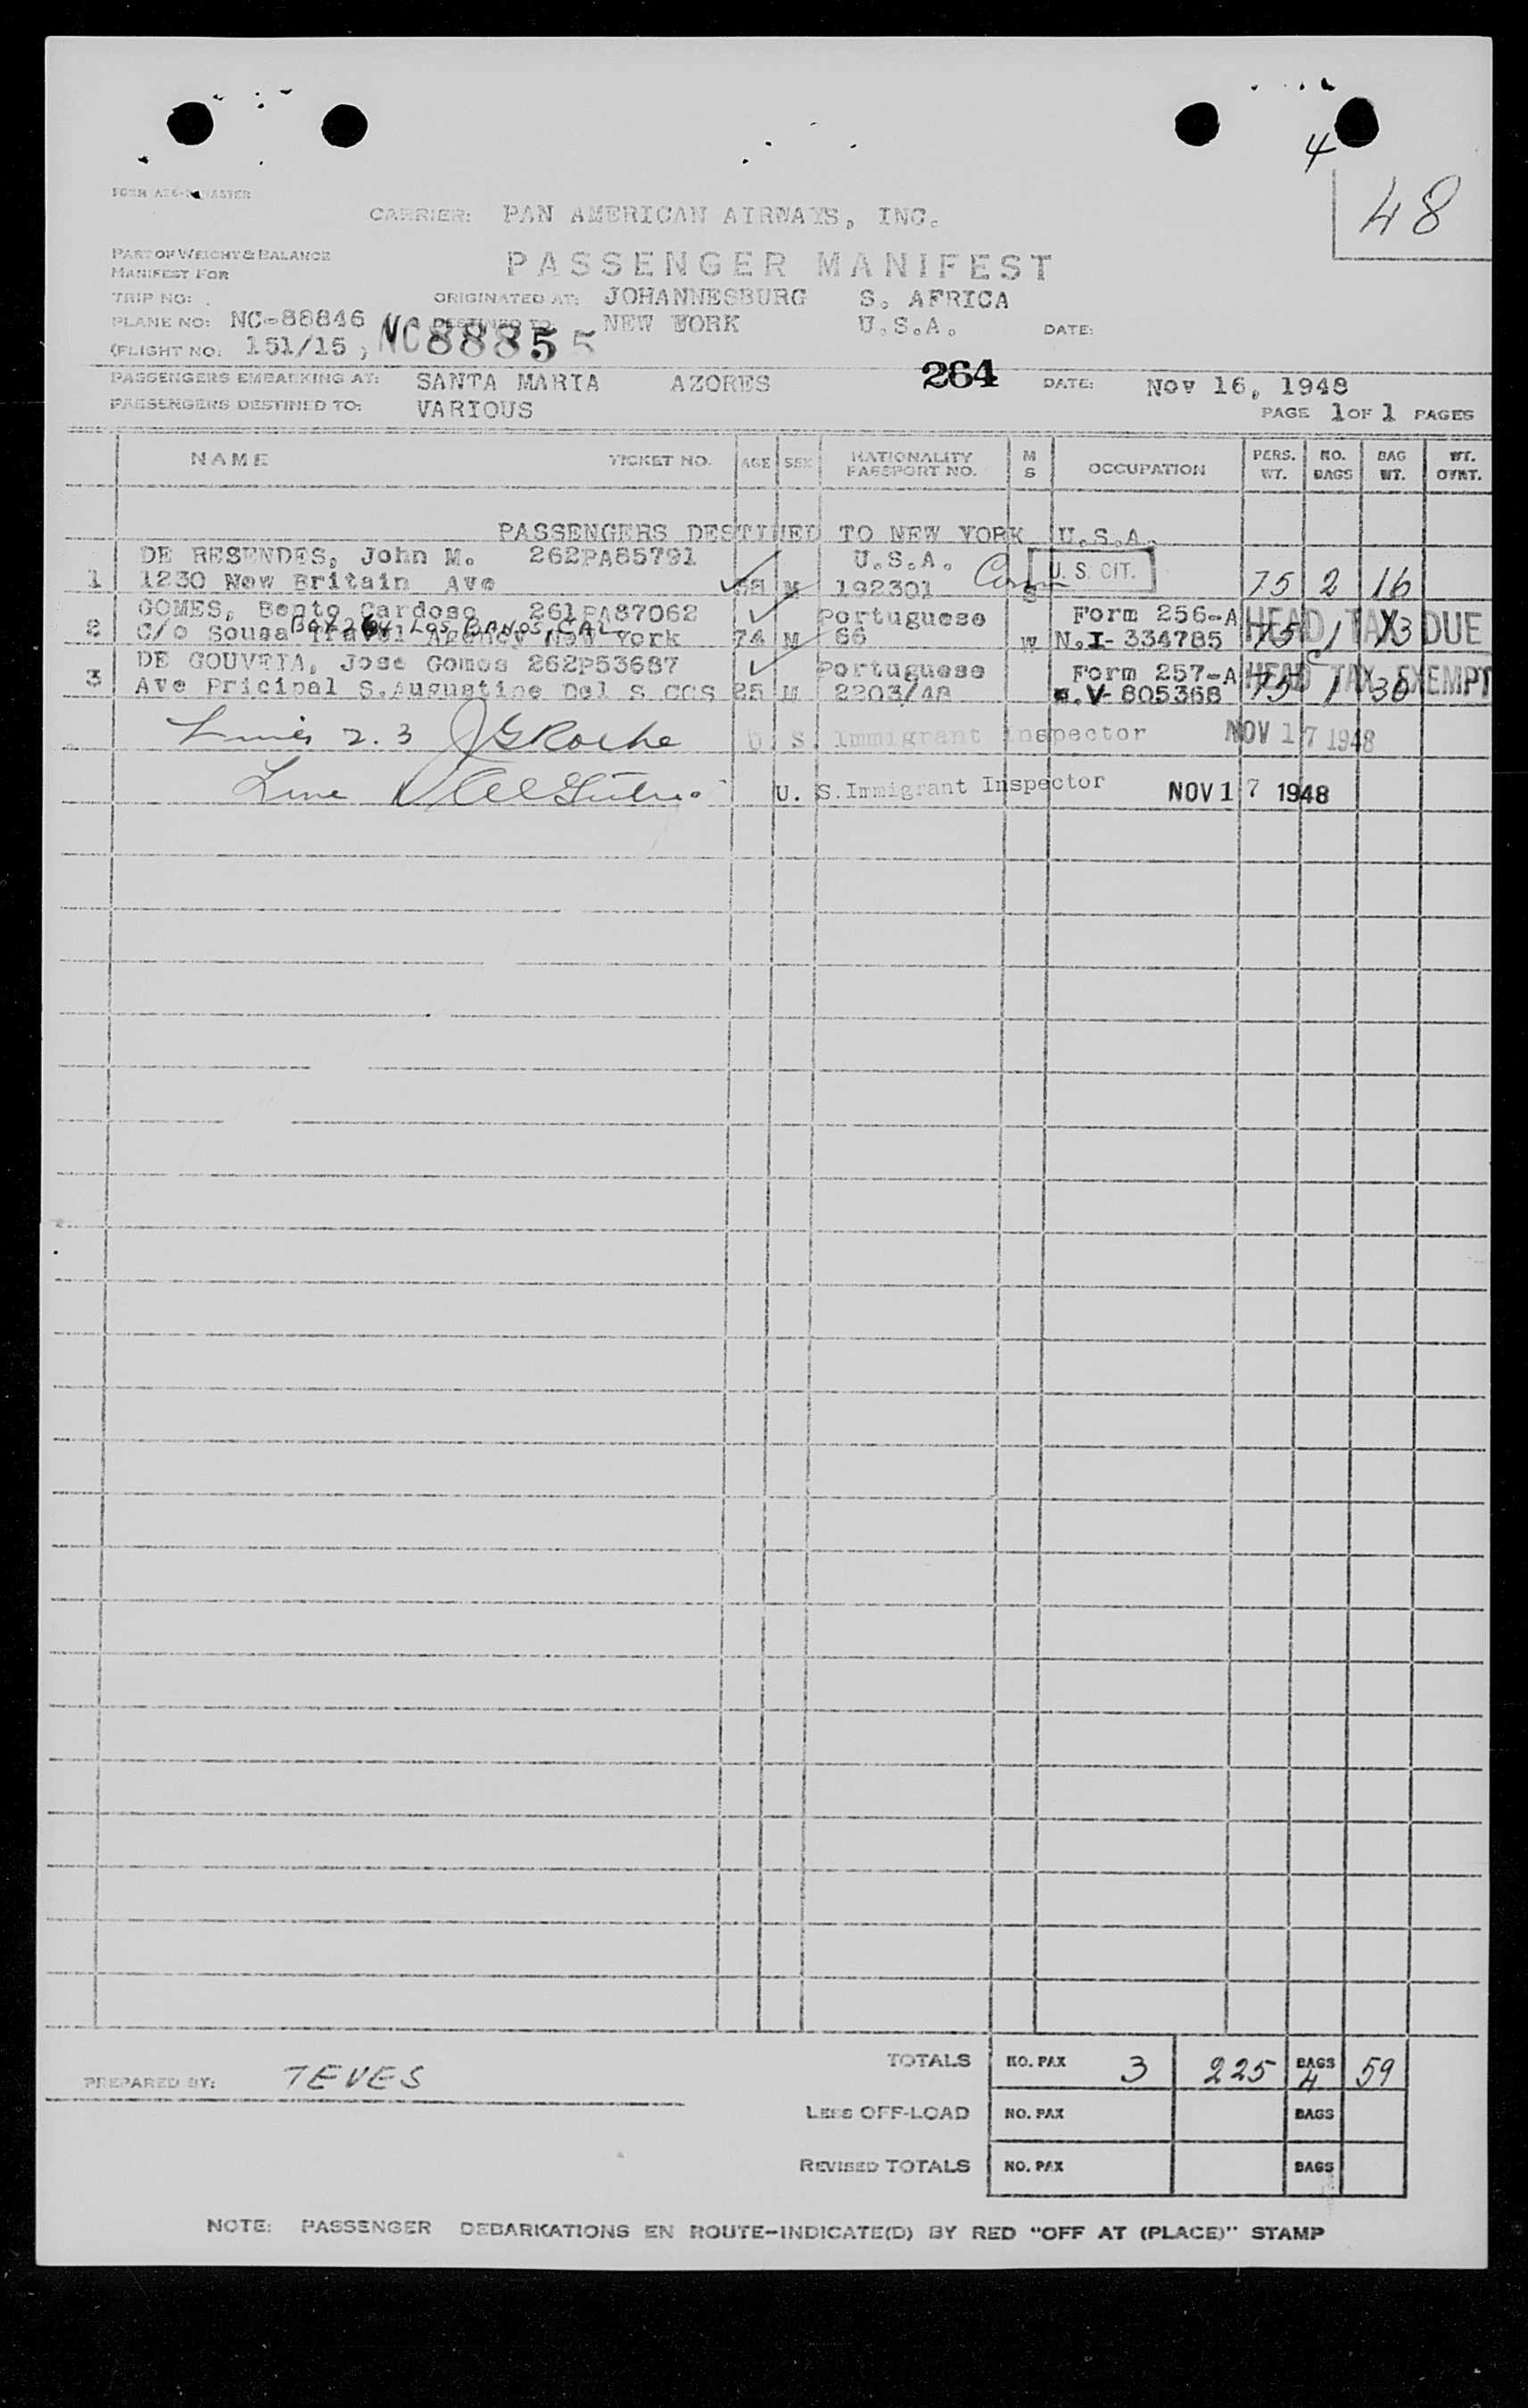 4
48
FORM A26-1 MASTER
CARRIER: PAN AMERICAN AIRWAYS, INC.
PART OF WEIGHT & BALANCE
MANIFEST FOR
PASSENGER MANIFEST
TRIP NO: ORIGINATED AT: JOHANNESBURG S. AFRICA
PLANE NO: NC-88846 DESTINED TO: NEW YORK U.S.A. DATE:
(FLIGHT NO: 151/15 ; NC88855
264
PASSENGERS EMBARKING AT: SANTA MARIA AZORES DATE: Nov 16, 1948
PASSENGERS DESTINED TO: VARIOUS PAGE 1 OF 1 PAGES
NAME TICKET NO. AGE SEX NATIONALITY PASSPORT NO. M S OCCUPATION PERS. WT. NO. BAGS BAG WT. WT. OVNT.
PASSENGERS DESTINED TO NEW YORK U.S.A.
DE RESENDES, John M. 262PA85791 U.S.A. U. S. CIT.
1 1230 New Britain Ave 58 M 192301 S 75 2 16
GOMES, Bento Cardoso 261PA87062 Portuguese Form 256-A HEAD TAX DUE
BOX 264 LOS BANOS, CAL
2 C/o Sousa Travel Agency New York 74 M 66 W N.I- 334785 75 1 13
DE GOUVEIA, Jose Gomes 262P53687 Portuguese Form 257-A HEAD TAX EXEMPT
3 Ave Pricipal S.Augustine Del S CCS 25 M 2203/48 V- 805368 75 1 30
Lines 2. 3 JG Roche U. S. Immigrant Inspector NOV 17 1948
Line U. S. Immigrant Inspector NOV 17 1948
TOTALS NO. PAX 3 225 BAGS 4 59
PREPARED BY: TEVES
LESS OFF-LOAD NO. PAX BAGS
REVISED TOTALS NO. PAX BAGS
NOTE: PASSENGER DEBARKATIONS EN ROUTE-INDICATE(D) BY RED "OFF AT (PLACE)" STAMP